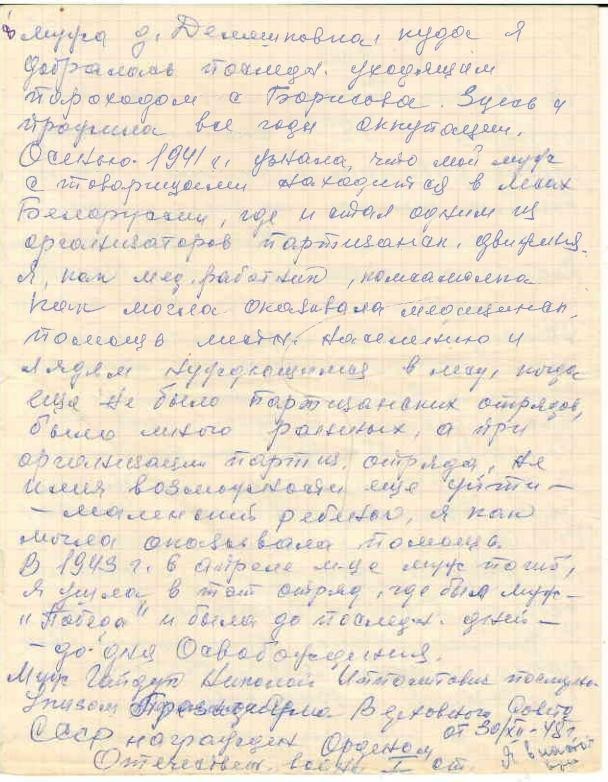 мужа д. Демешковка, куда я
добралась последн. уходящим
пароходом с Борисова. Здесь и
прожила все годы оккупации.
Осенью 1941 г. узнала, что мой муж
с товарищами находится в лесах
Белоруссии, где и стал одним из
организаторов партизанск. движения.
Я, как мед. работник, комсамолка
как могла оказывала медицинск.
помощь местн. населению и
людям нуждающимся в лесу, когда
еще не было партизанских отрядов,
было много раненых, а при
организации партиз. отряда, не
имея возможности еще уйти –
– маленький ребенок, я как
могла оказывала помощь.
В 1943 г. в апреле м-це муж погиб,
я ушла в тот отряд, где был муж –
"Победа" и была до последн. дней –
– до дня Освобождения.
Муж Николай посмертно
Указом Президиума Верховного Совета
СССР награжден Орденом от 30/XII-48 г.
Отечествен. войны I ст. Я в